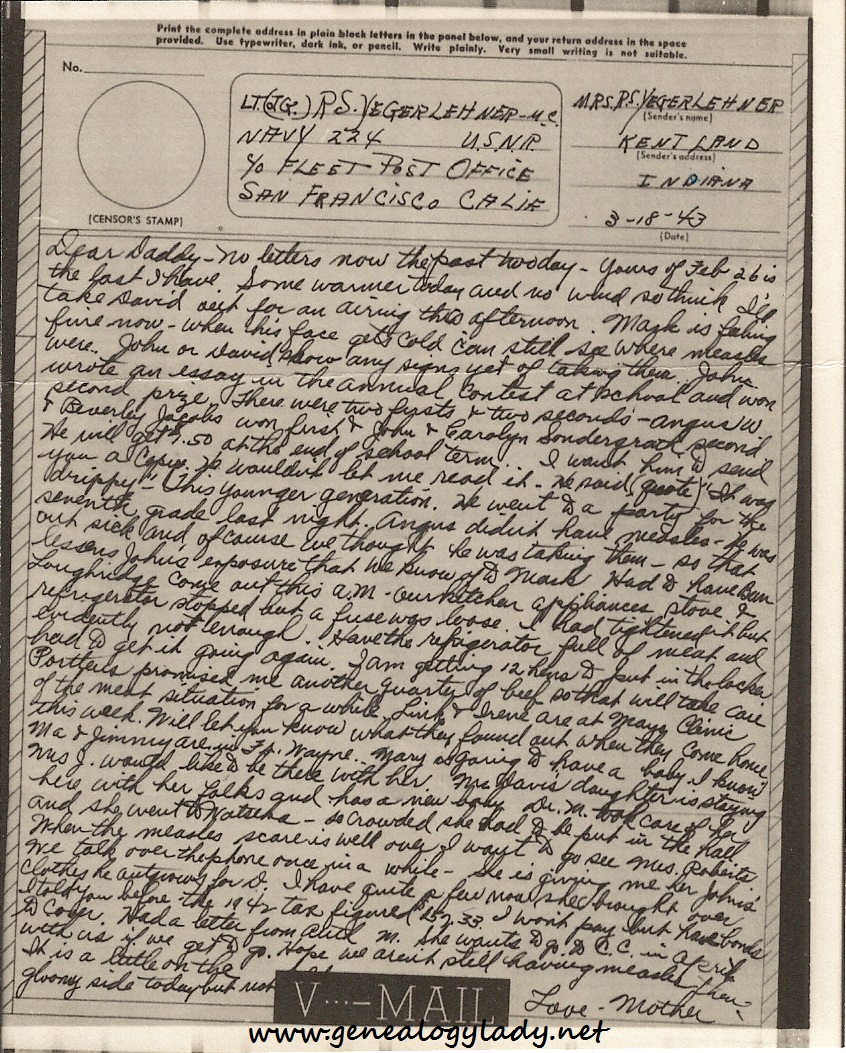 Print the complete address in plain block letters in the panel below, and your return address in the space
provided. Use typewriter, dark ink, or pencil. Write plainly. Very small writing is not suitable.
No.
(CENSOR'S STAMP)
LT.(JG.) R.S. YEGERLEHNER-M.C.
NAVY 224 U.S.N.R.
℅ FLEET POST OFFICE
SAN FRANCISCO CALIF
MRS. R.S. YEGERLEHNER
(Sender's name)
KENTLAND
(Sender's address)
INDIANA
3-18-43
(Date)
Dear Daddy - No letters now the past two day - Yours of Feb 26 is
the last I have. Some warmer today and no wind so think I'll
take David out for an airing this afternoon. Mark is feeling
fine now - when his face gets cold can still see where measles
were. John or David show any signs yet of taking them. John
wrote an essay in the annual contest at school and won
second prize. There were two firsts & two seconds - Angus W
& Beverley Jacobs won first & John & Carolyn Sondergrath second.
He will get .50 at the end of school term. I want him to send
you a copy. He wouldn't let me read it. He said, (quote) "It was
drippy" - This younger generation. He went to a party for the
seventh grade last night. Angus didn't have measles - he was
out sick and of course we thought he was taking them - so that
lessens John's exposure that we know of to Mark. Had to have Dan
Loughridge come out this A.M. - our kitchen appliances stove &
refrigerator stopped but a fuse was loose. I had tightened it but
evidently not enough. Have the refrigerator full of meat and
had to get it going again. I am getting 12 hens to put in the locker
Portters promised me another quarter of beef so that will take care
of the meat situation for a while. Link & Irene are at Mayo Clinic
this week. Will let you know what they found out when they come home.
Ma & Jimmy are in Ft. Wayne. Mary is going to have a baby. I know
Mrs J. would like to be there with her. Mrs Davis' daughter is staying
here with her folks and has a new baby. Dr. M. took care of her
and she went to Watseka - so crowded she had to be put in the hall
When the measles scare is well over I want to go see Mrs. Roberts
We talk over the phone once in a while - she is giving me her Johns'
clothes he outgrows for D. I have quite a few now she brought over
I told you before - the 1942 tax figured 33. I won't pay but have bonds
to cover. Had a letter from Aunt M. She wants to go to C.C. in April
with us if we get to go. Hope we aren't still having measles then.
It is a little on the
gloomy side today but not
Love - Mother
V···–MAIL
www.genealogylady.net